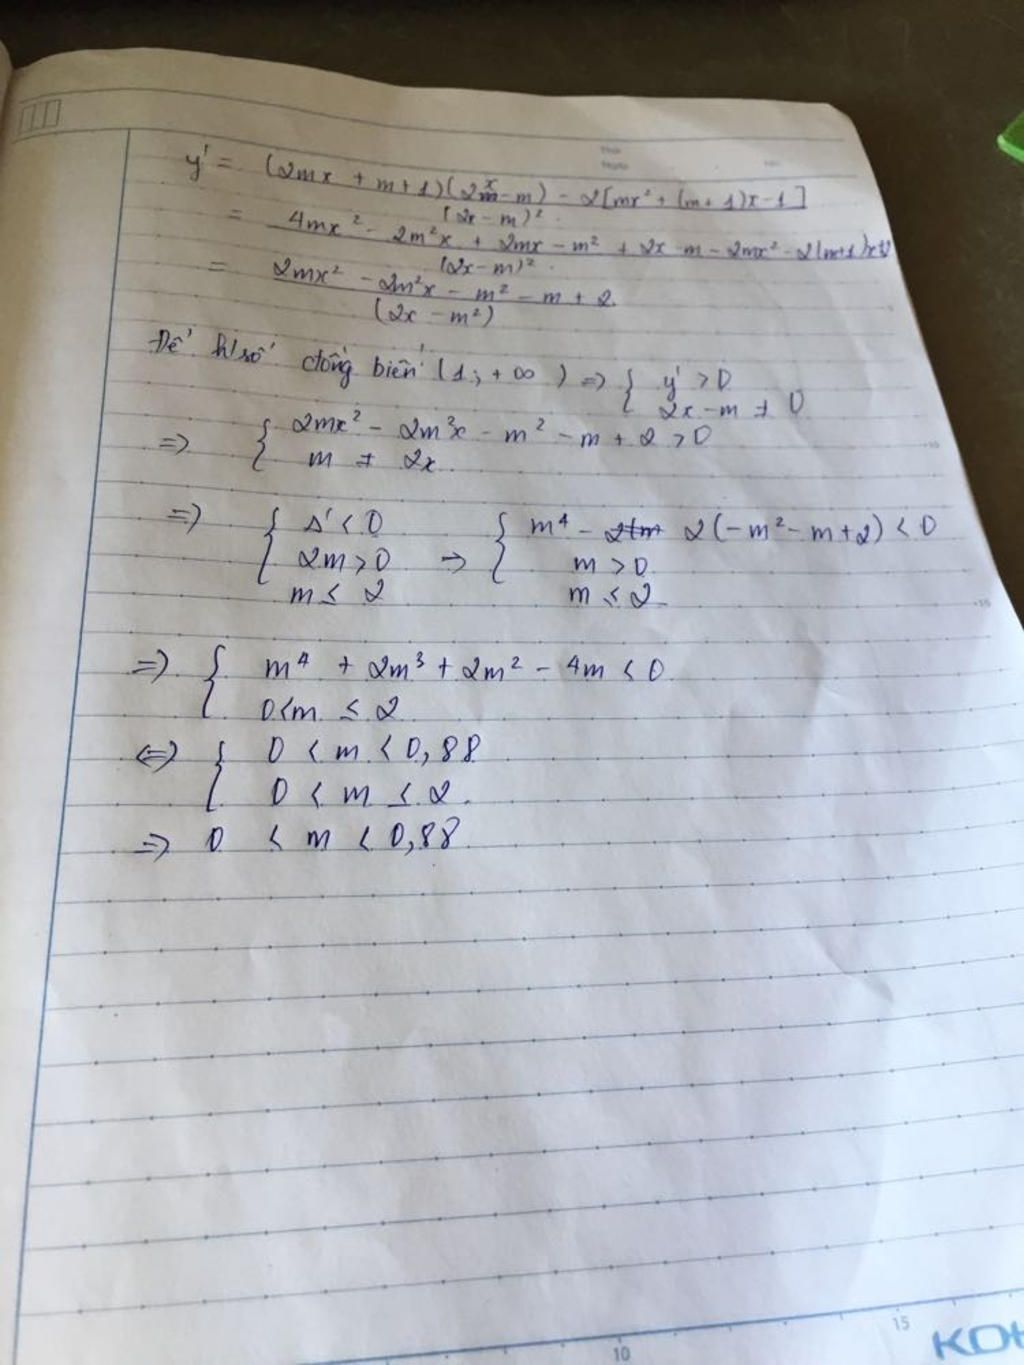 y' = (2mx + m+1)(2x-m) - 2[mx² + (m+1)x-1]
(2x - m)²
= 4mx² - 2m²x + 2mx - m² + 2x - m - 2mx² - 2(m+1)x+2
(2x-m)²
= 2mx² - 2m²x - m² - m + 2
(2x - m²)
Để h/số đồng biến (1; +∞) => { y' > 0
2x - m ≠ 0
=> { 2mx² - 2m²x - m² - m + 2 > 0
m ≠ 2x
=> { Δ' < 0 → { m⁴ - 2(-m² - m + 2) < 0
2m > 0 m > 0
m ≤ 2 m ≤ 2
=> { m⁴ + 2m³ + 2m² - 4m < 0
0 < m ≤ 2
<=> { 0 < m < 0,88
0 < m ≤ 2
=> 0 < m < 0,88
10
15